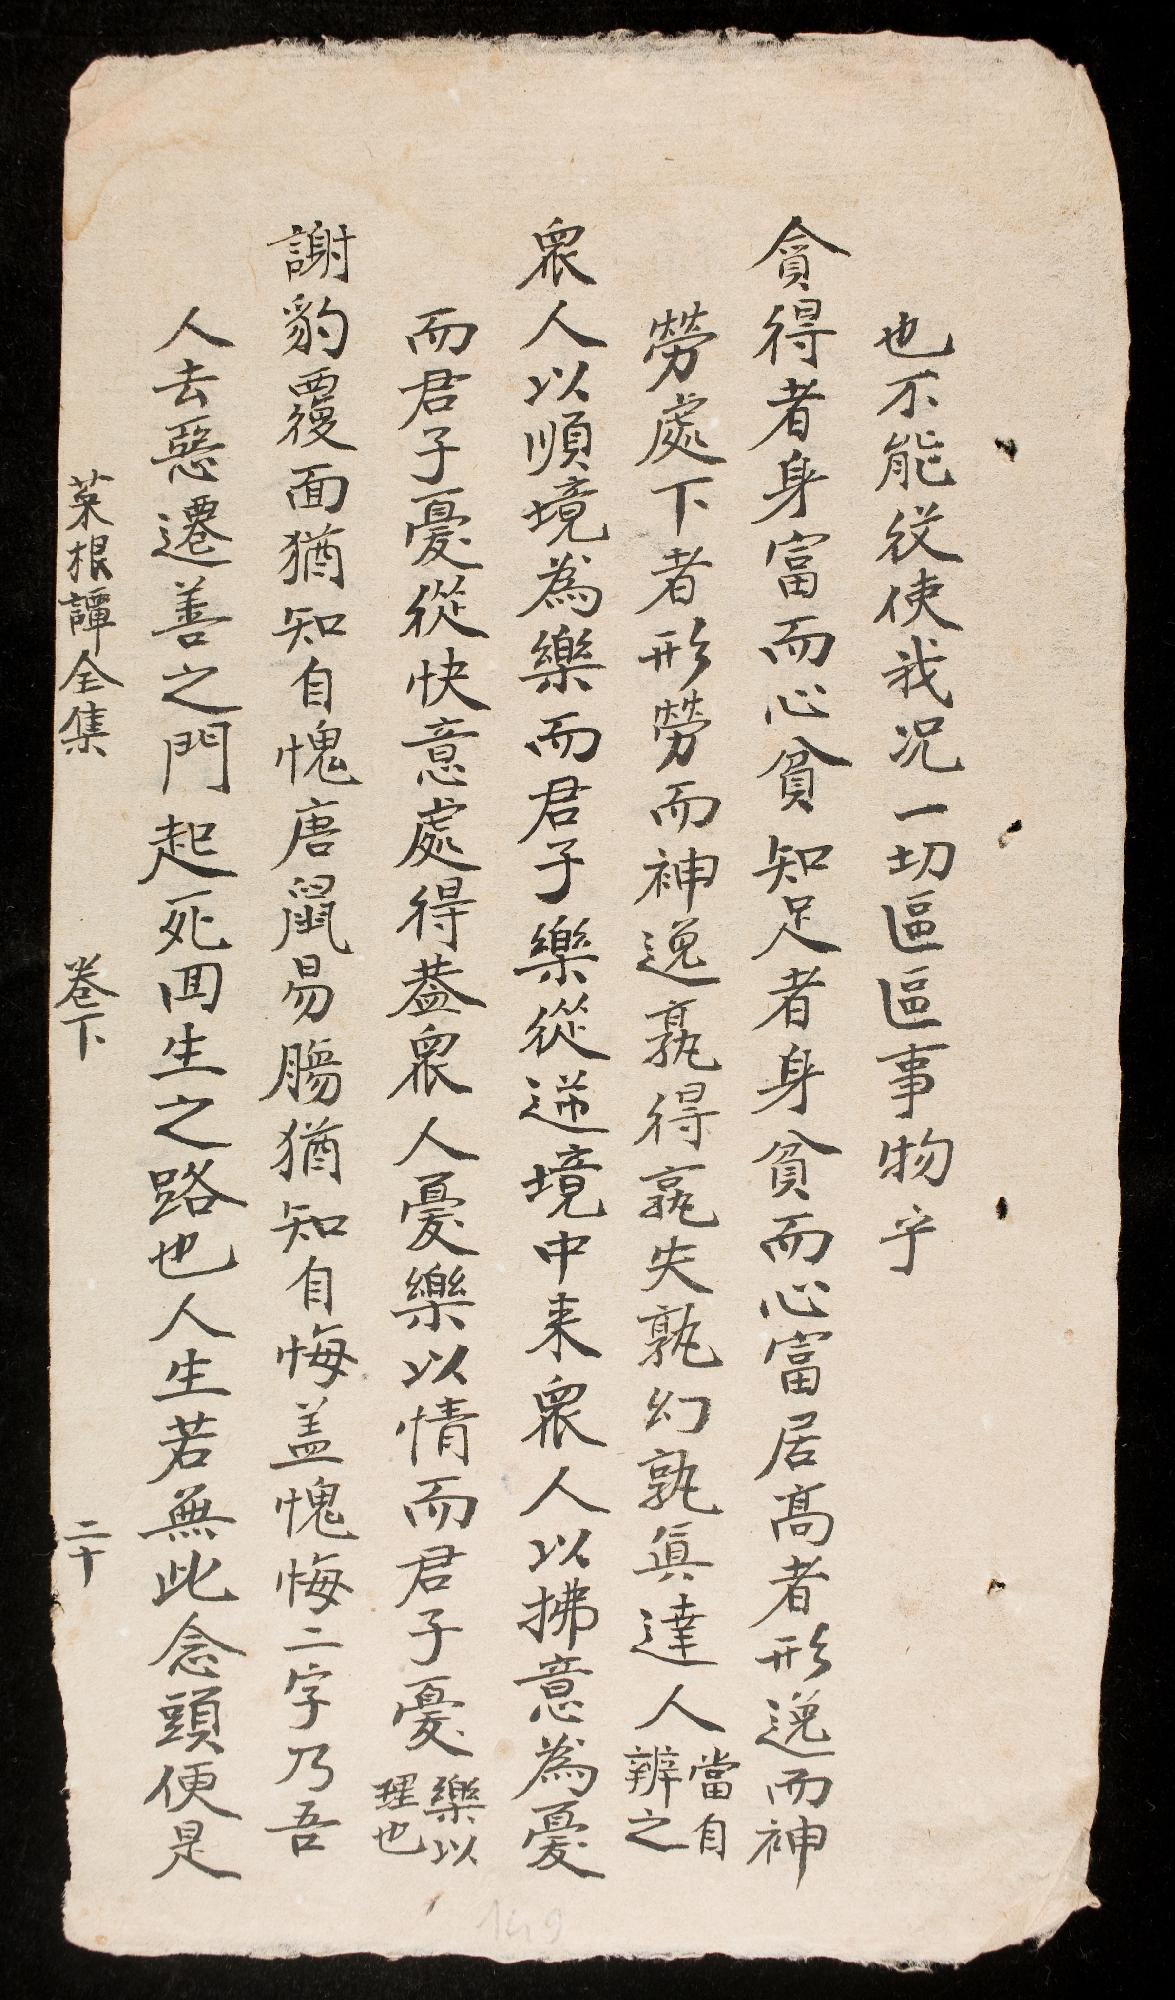 也不能役使我况一切區區事物乎
貪得者身富而心貧知足者身貧而心富居高者形逸而神
勞處下者形勞而神逸孰得孰失孰幻孰眞達人當自辨之
衆人以順境為樂而君子樂從逆境中来衆人以拂意為憂
而君子憂從快意處得葢衆人憂樂以情而君子憂樂以理也
謝豹覆面猶知自愧唐鼠易膓猶知自悔盖愧悔二字乃吾
人去惡遷善之門起死回生之路也人生若無此念頭便是
菜根譚全集 卷下 二十
149